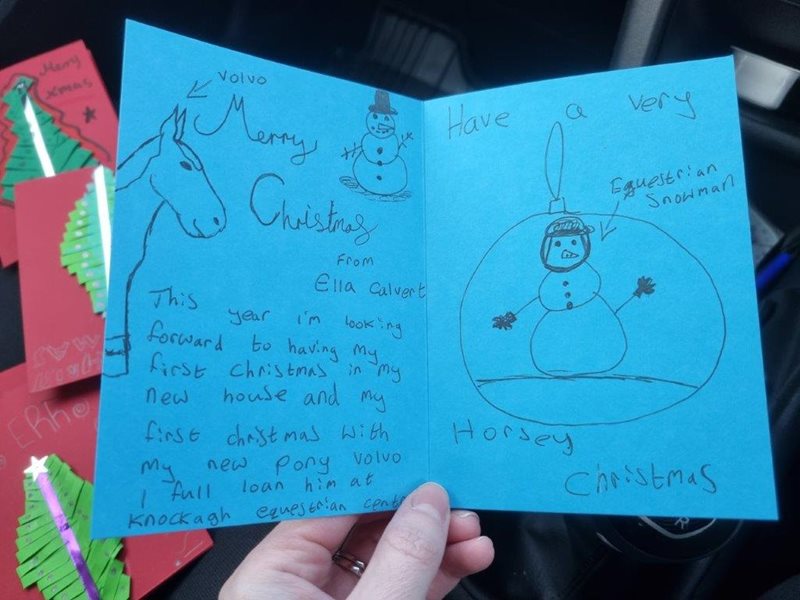 Merry
xmas
Volvo
Merry
Christmas
From
Ella Calvert
This
year i'm looking
forward to having my
first Christmas in my
new house and my
first christmas with
my new pony volvo
I full loan him at
Knockagh equestrian centr
Have a very
Equestrian
Snowman
Horsey
Christmas